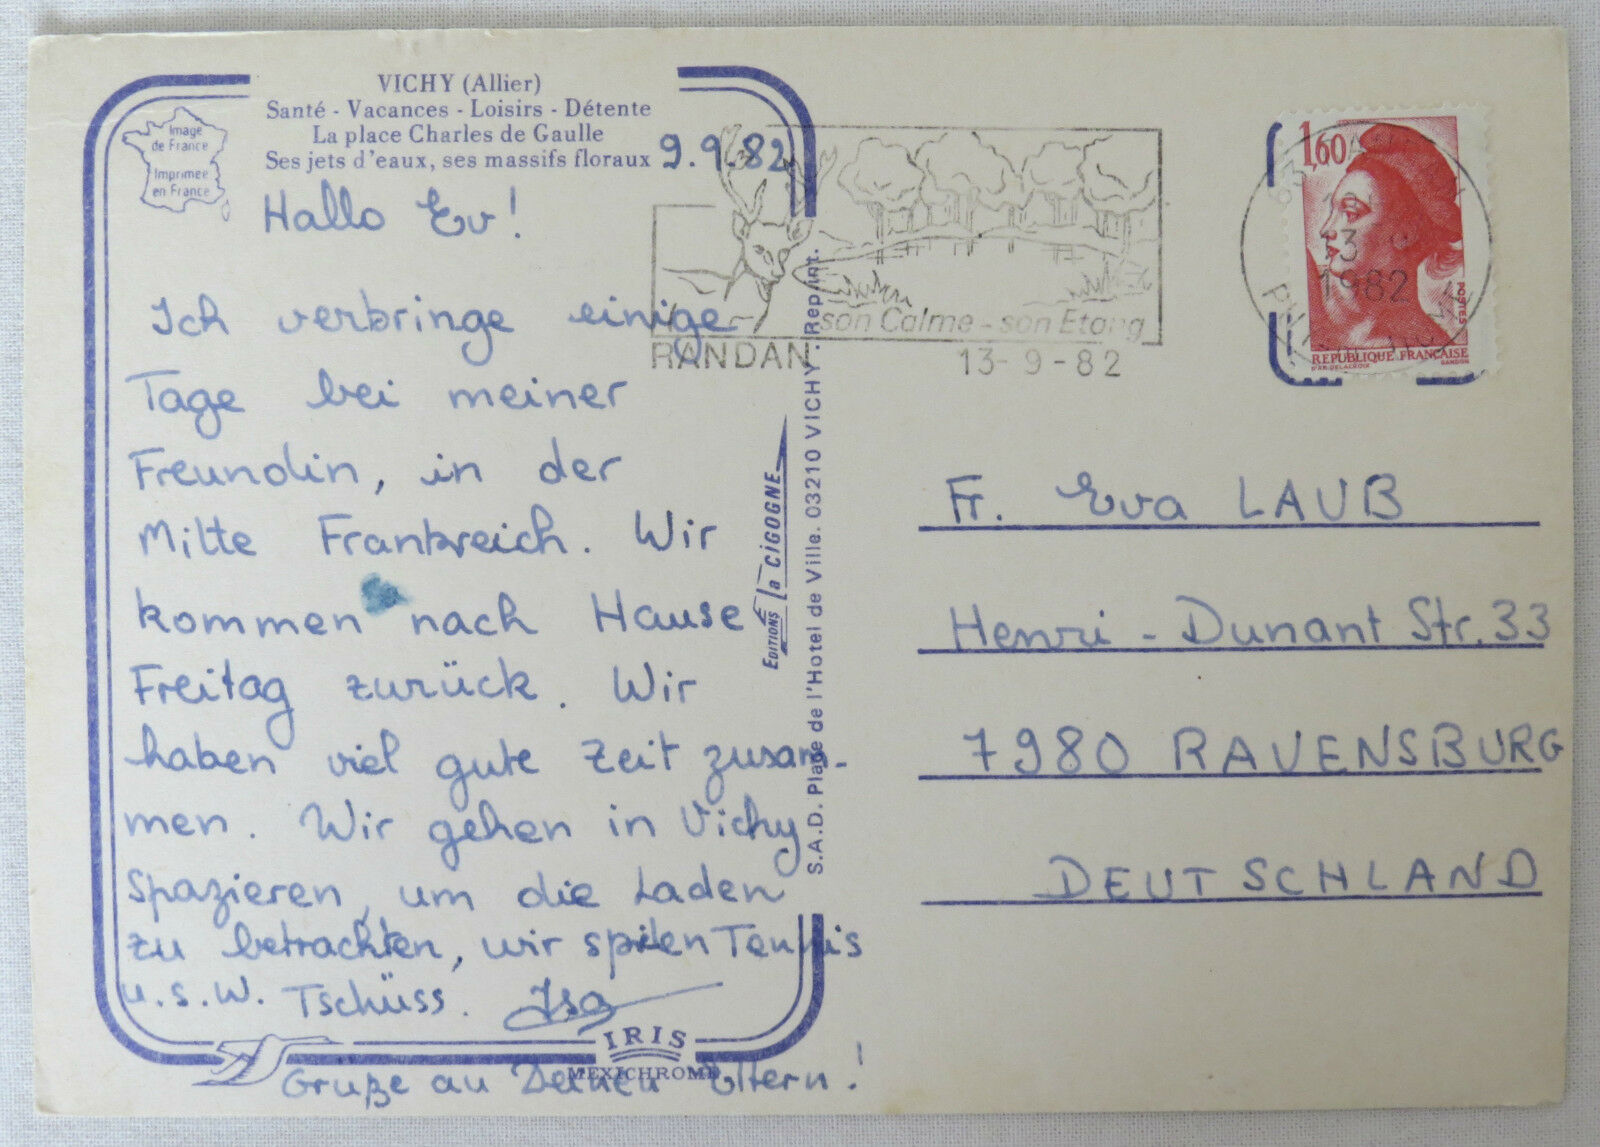 VICHY (Allier)
Santé - Vacances - Loisirs - Détente
La place Charles de Gaulle
Ses jets d'eaux, ses massifs floraux
Image
de France
Imprimée
en France
9.9.82
Hallo Ev!
Ich verbringe einige
Tage bei meiner
Freundin, in der
Mitte Frankreich. Wir
kommen nach Hause
Freitag zurück. Wir
haben viel gute Zeit zusam-
men. Wir gehen in Vichy
Spazieren, um die Laden
zu betrachten, wir spilen Tennis
u.s.w. Tschüss. Isa
Gruße an Deinen Eltern!
IRIS
MEXICHROME
EDITIONS la CIGOGNE
S.A.D. Place de l'Hotel de Ville. 03210 VICHY. Rep. int.
son Calme - son Etang
RANDAN 13-9-82
63
13
1982
1,60
POSTES
REPUBLIQUE FRANÇAISE
D'AP. DELACROIX GANDON
Fr. Eva LAUB
Henri - Dunant Str. 33
7980 RAVENSBURG
DEUTSCHLAND